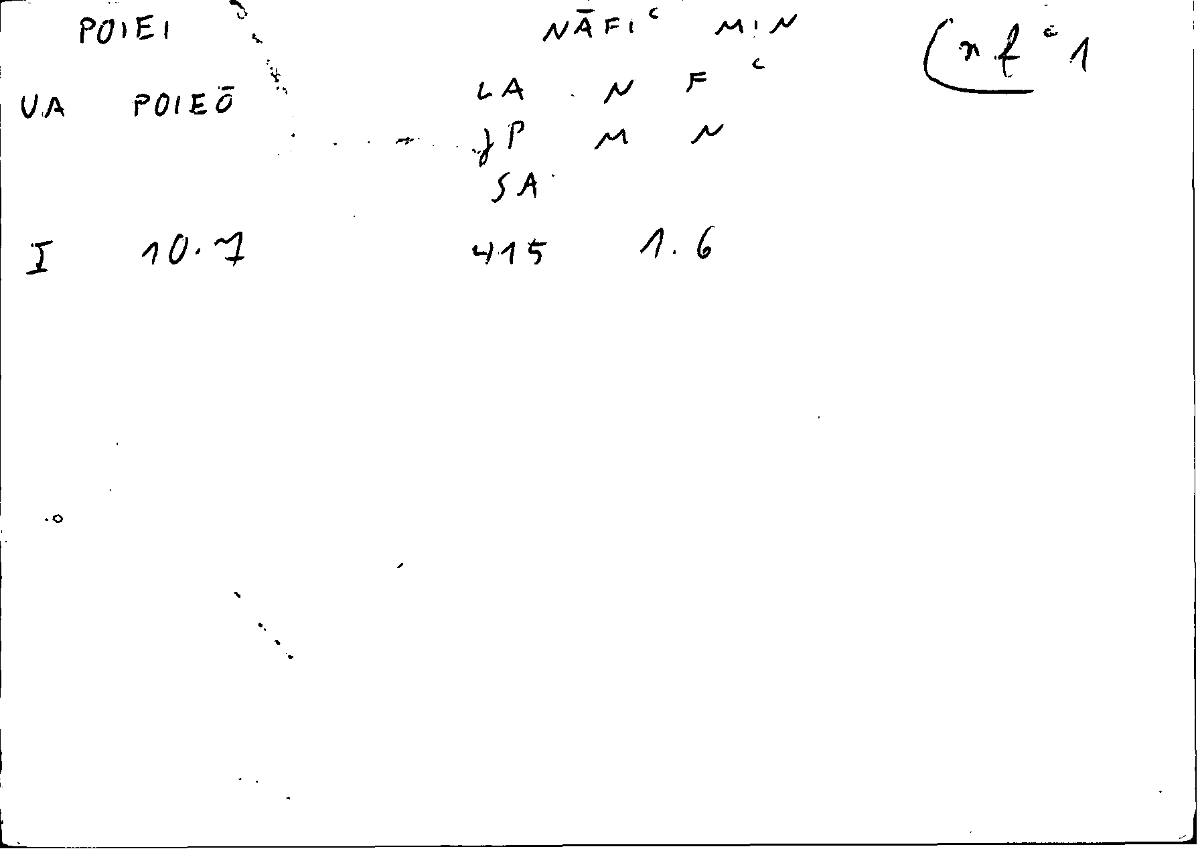 POIEI NĀFIᶜ MIN (nfᶜ1
VA POIEŌ LA N Fᶜ
JP M N
SA
I 10.7 415 1.6